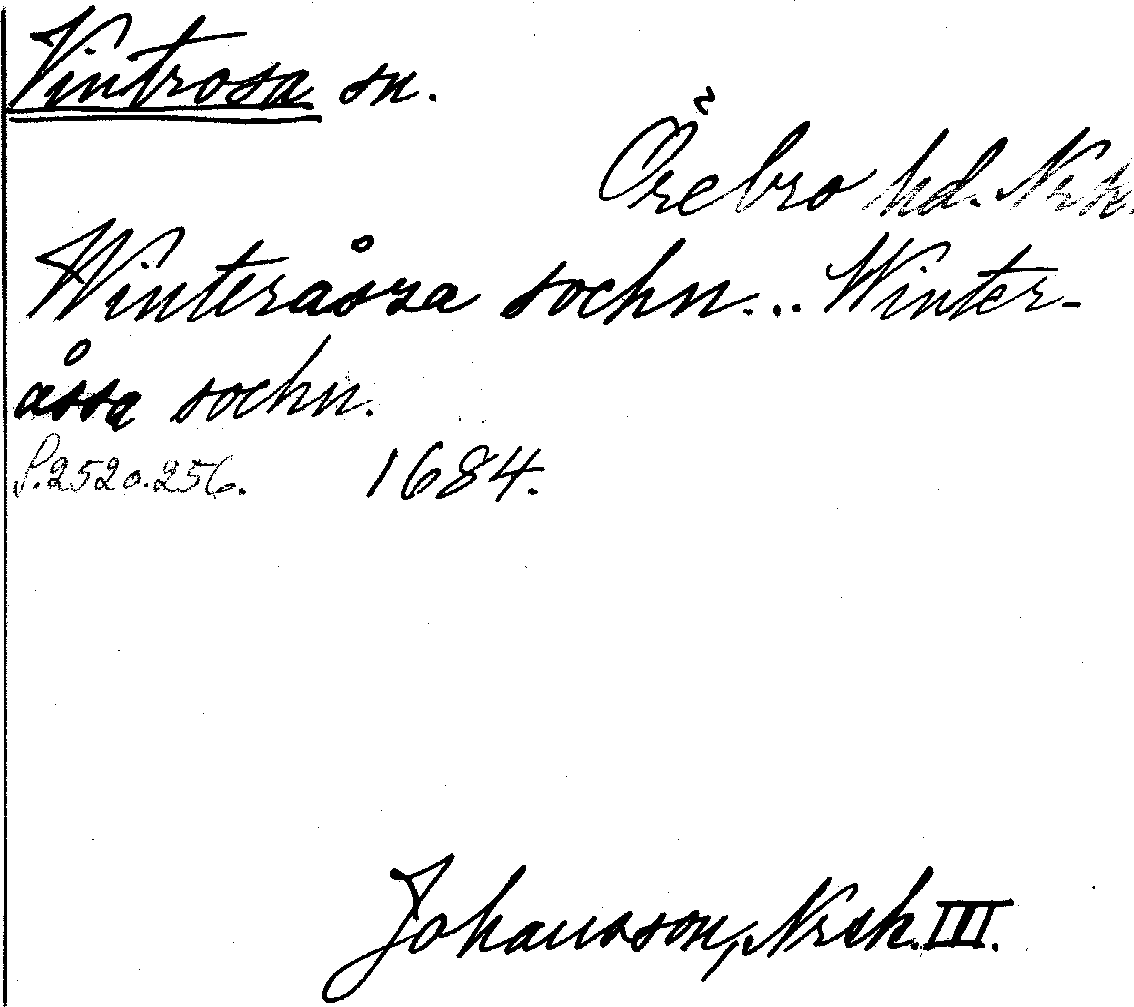 Vintrosa sn.
Örebro hd. Nrk.
Winteråsza sochn... Winter-
åssa sochn.
S. 252 o. 256. 1684.
Johansson, Nrsk. III.